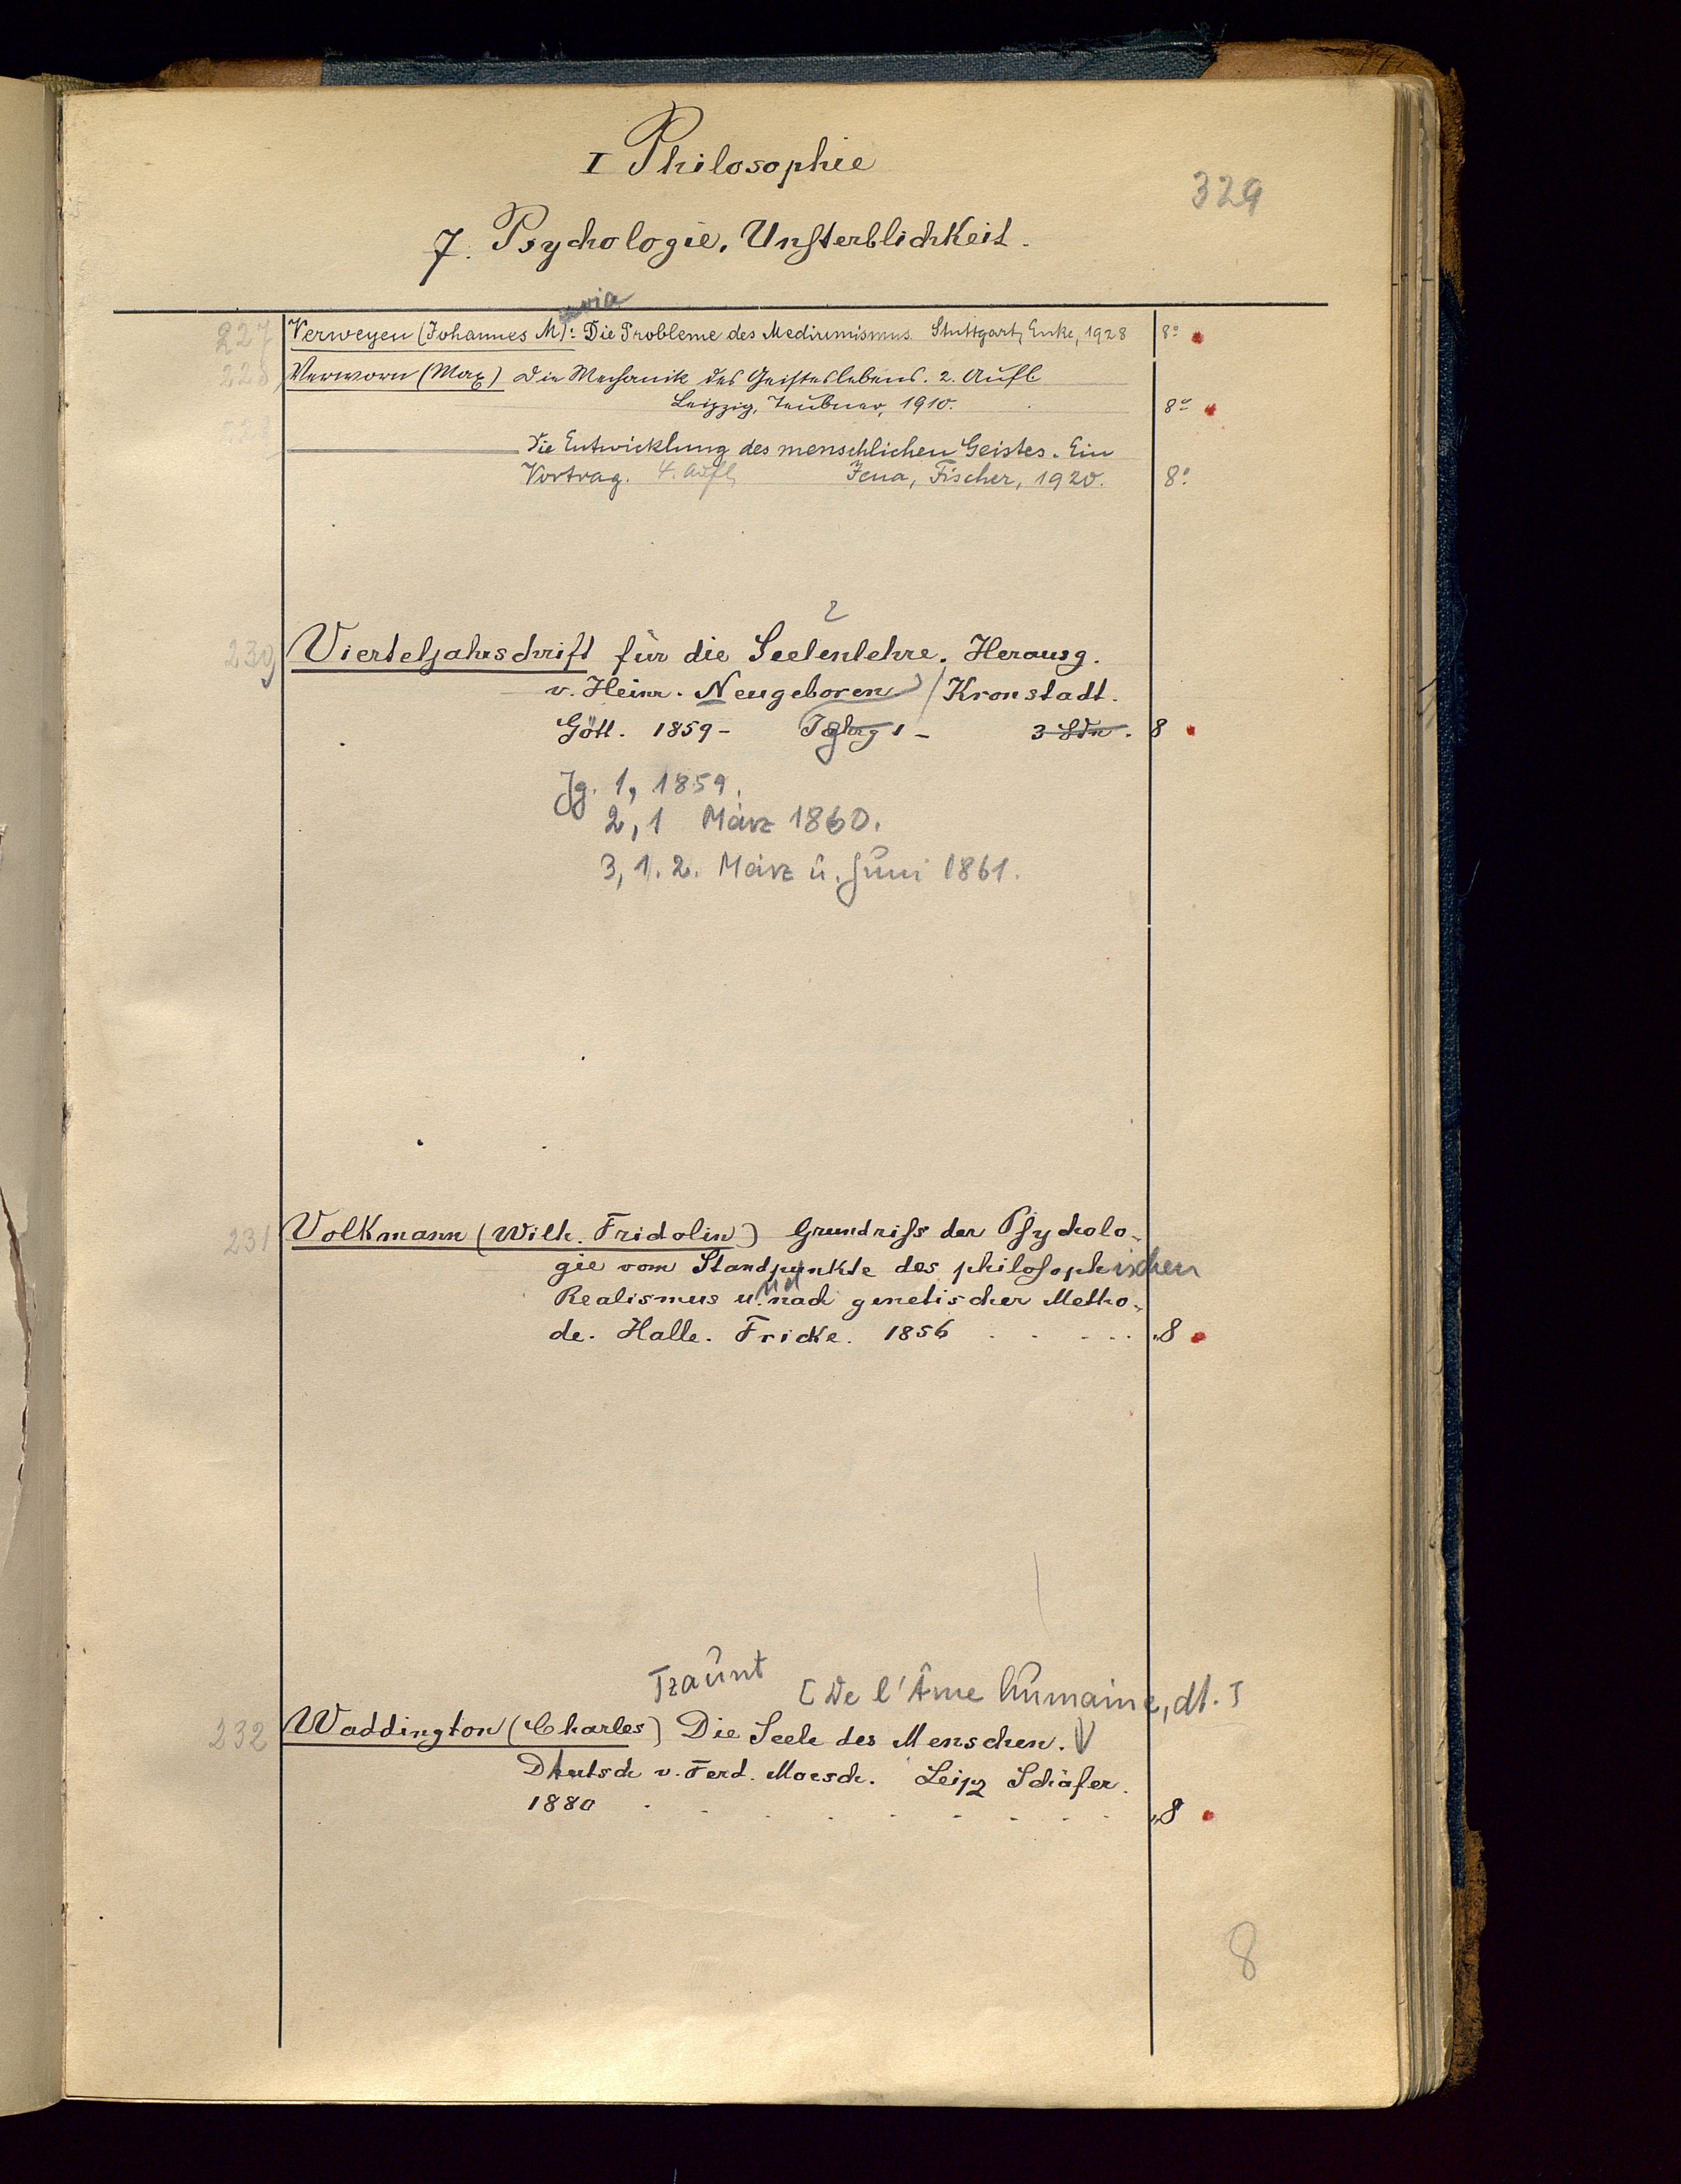 I Philosophie
329
7. Psychologie, Unsterblichkeit.
227 Verweyen (Johannes M): Die Probleme des Mediumismus. Stuttgart, Enke, 1928 8°
228 Verworn (Max) Die Mechanik des Geisteslebens. 2. Aufl
Leipzig, Teubner, 1910. 8°
229 Die Entwicklung des menschlichen Geistes. Ein
Vortrag. 4. Aufl. Jena, Fischer, 1920. 8°
2
230 Vierteljahrschrift für die Seelenlehre. Herausg.
v. Heinr. Neugeboren / Kronstadt.
Gött. 1859- Jahrg 1 - 3 Bde. 8
Jg. 1, 1859.
2, 1 März 1860.
3, 1. 2. März u. Juni 1861.
231 Volkmann (Wilh. Fridolin) Grundriss der Psycholo-
gie vom Standpunkte des philosophischen
Realismus u. nach genetischer Metho-
de. Halle. Fricke. 1856 8
[De l'Âme humaine, dt.]
232 Waddington (Charles) Die Seele des Menschen.
Deutsch v. Ferd. Moesch. Leipz Schäfer.
1880 8
8